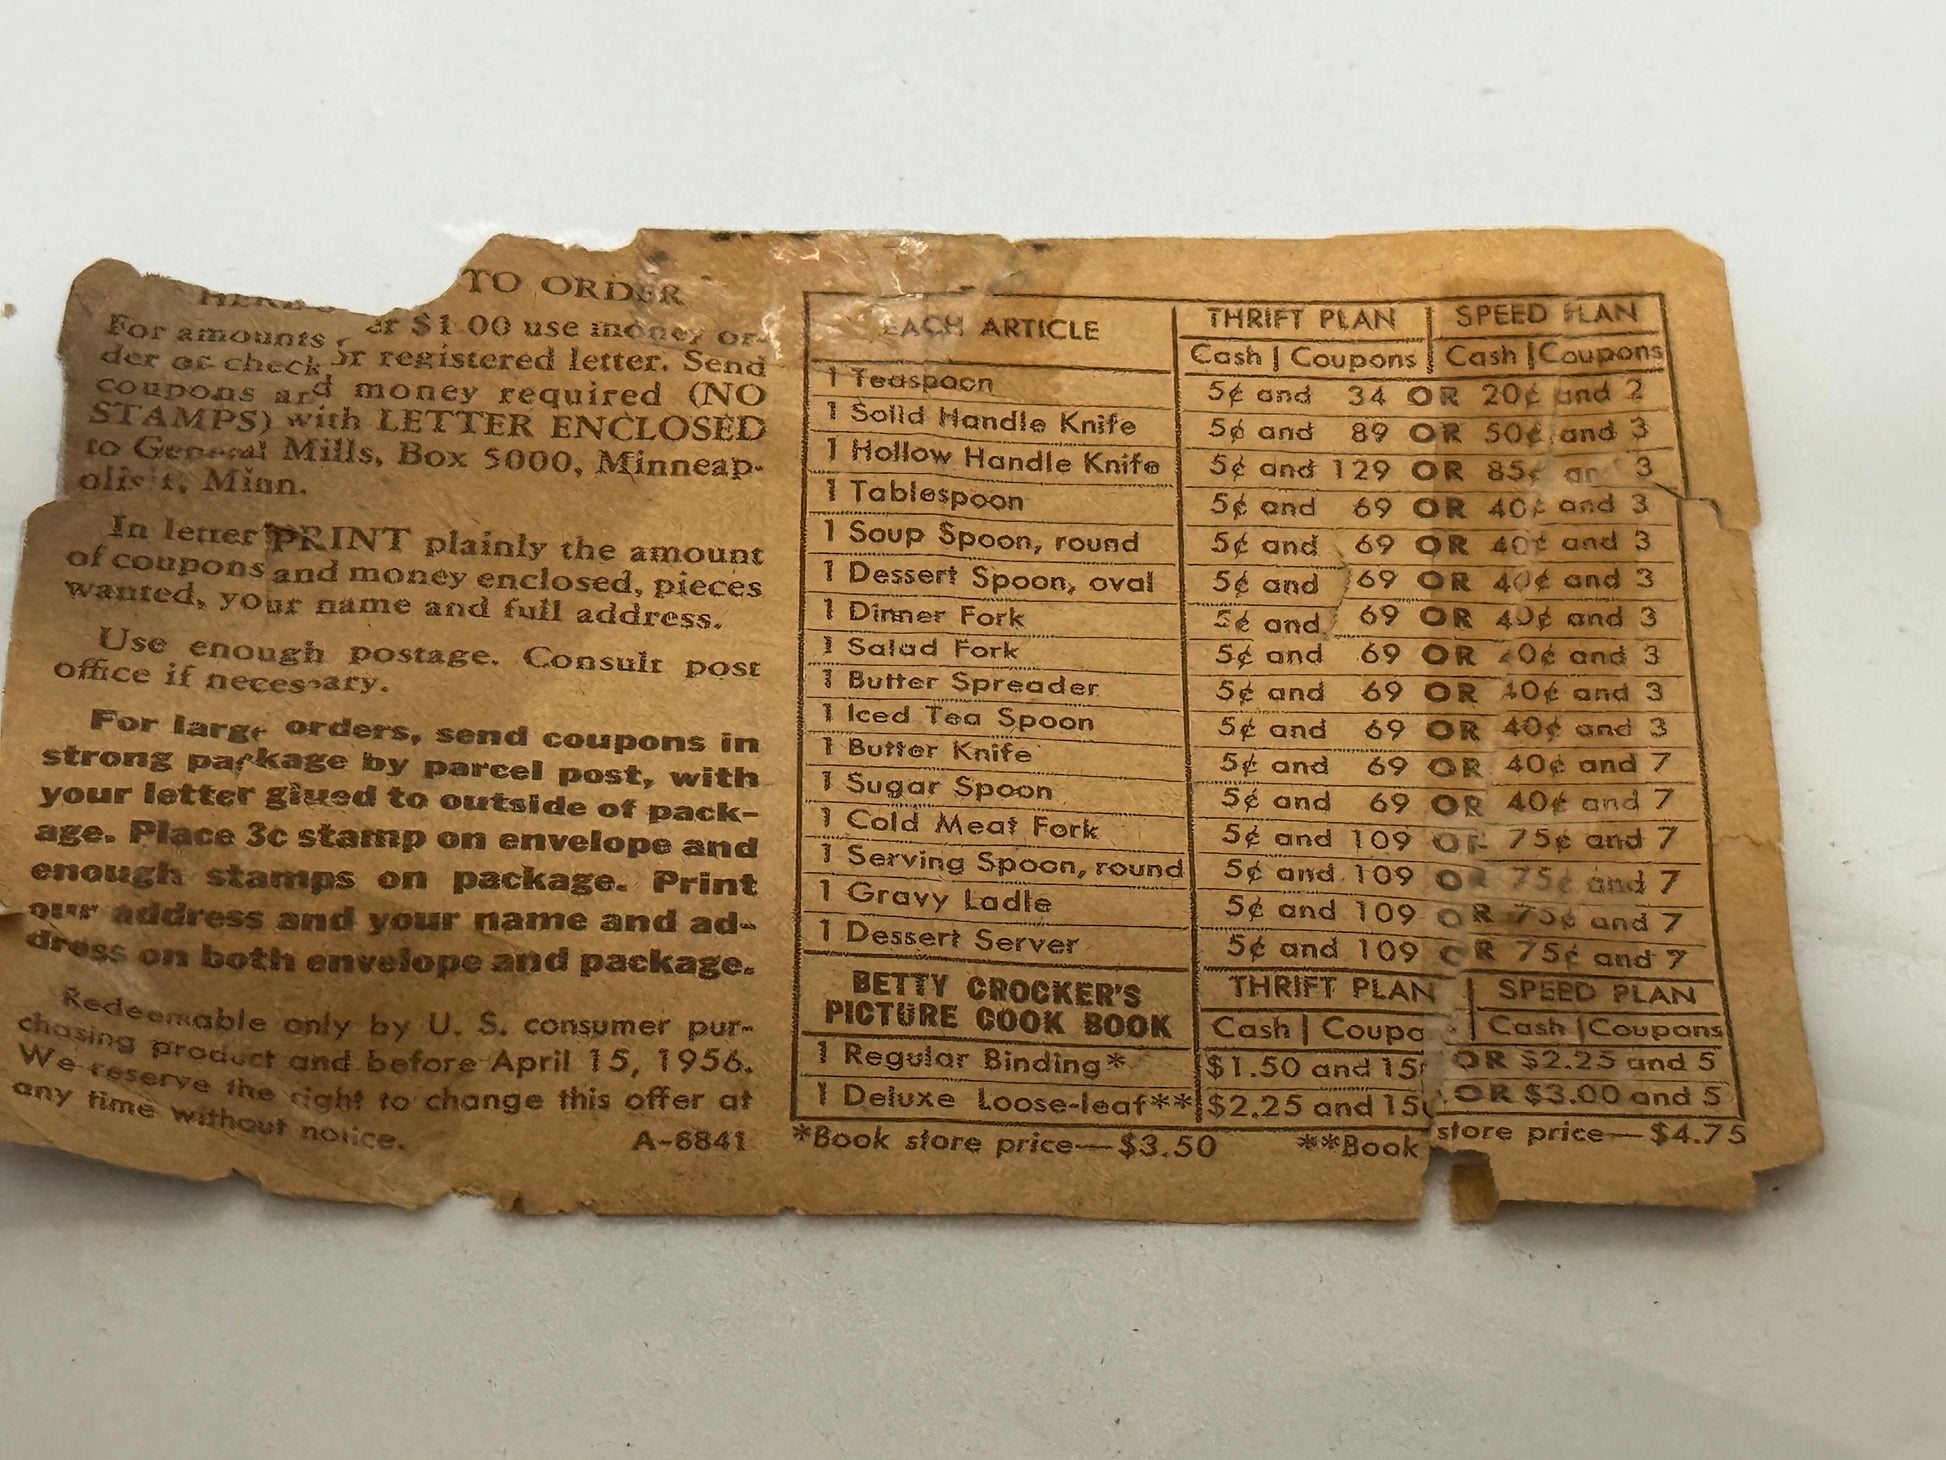 TO ORDER
For amounts er $1.00 use money or-
der or check or registered letter. Send
coupons and money required (NO
STAMPS) with LETTER ENCLOSED
to General Mills, Box 5000, Minneap-
olis 1, Minn.
In letter PRINT plainly the amount
of coupons and money enclosed, pieces
wanted, your name and full address.
Use enough postage. Consult post
office if necessary.
For large orders, send coupons in
strong package by parcel post, with
your letter glued to outside of pack-
age. Place 3c stamp on envelope and
enough stamps on package. Print
our address and your name and ad-
dress on both envelope and package.
Redeemable only by U. S. consumer pur-
chasing product and before April 15, 1956.
We reserve the right to change this offer at
any time without notice. A-6841
EACH ARTICLE THRIFT PLAN SPEED PLAN
Cash | Coupons Cash | Coupons
1 Teaspoon 5¢ and 34 OR 20¢ and 2
1 Solid Handle Knife 5¢ and 89 OR 50¢ and 3
1 Hollow Handle Knife 5¢ and 129 OR 85¢ and 3
1 Tablespoon 5¢ and 69 OR 40¢ and 3
1 Soup Spoon, round 5¢ and 69 OR 40¢ and 3
1 Dessert Spoon, oval 5¢ and 69 OR 40¢ and 3
1 Dinner Fork 5¢ and 69 OR 40¢ and 3
1 Salad Fork 5¢ and 69 OR 40¢ and 3
1 Butter Spreader 5¢ and 69 OR 40¢ and 3
1 Iced Tea Spoon 5¢ and 69 OR 40¢ and 3
1 Butter Knife 5¢ and 69 OR 40¢ and 7
1 Sugar Spoon 5¢ and 69 OR 40¢ and 7
1 Cold Meat Fork 5¢ and 109 OR 75¢ and 7
1 Serving Spoon, round 5¢ and 109 OR 75¢ and 7
1 Gravy Ladle 5¢ and 109 OR 75¢ and 7
1 Dessert Server 5¢ and 109 OR 75¢ and 7
BETTY CROCKER'S THRIFT PLAN SPEED PLAN
PICTURE COOK BOOK Cash | Coupo Cash | Coupons
1 Regular Binding* $1.50 and 15 OR $2.25 and 5
1 Deluxe Loose-leaf** $2.25 and 15 OR $3.00 and 5
*Book store price—$3.50 **Book store price—$4.75